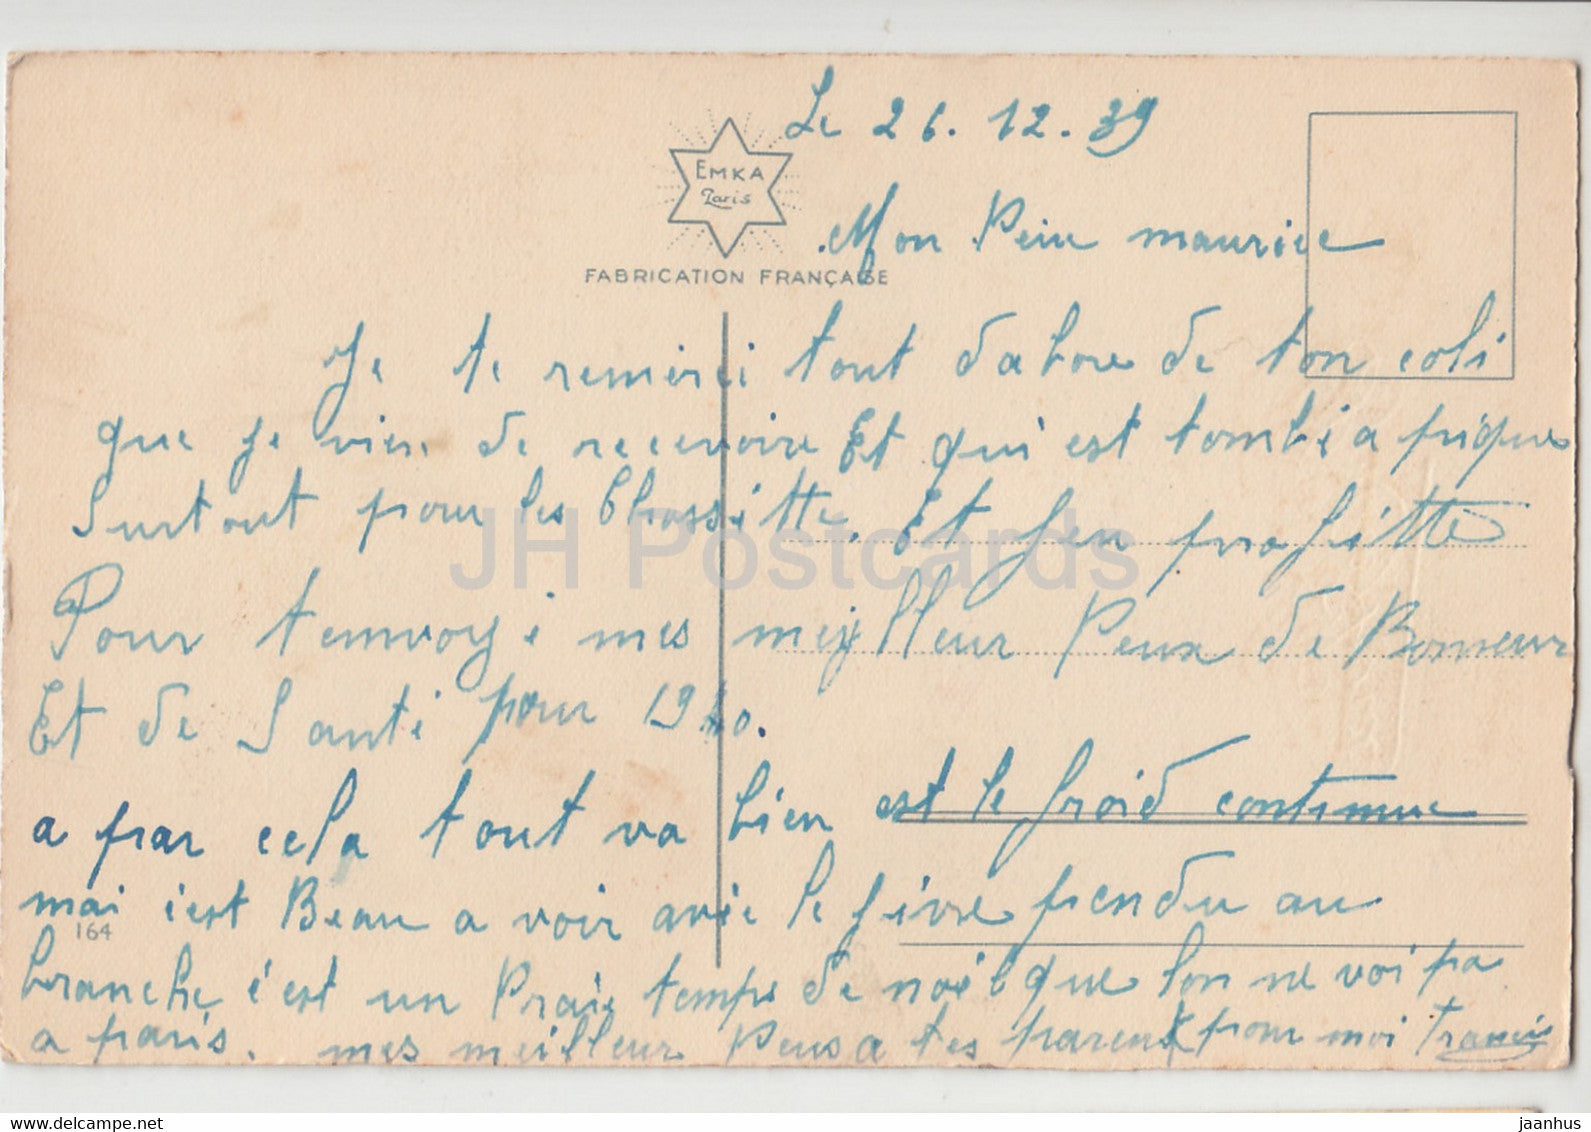 Le 26.12.39
EMKA
Paris
FABRICATION FRANÇAISE
Mon Peiu maurice
Je te remerci tout dabore de ton coli
que je vien de recevoire Et qui est tombé a pique
Surtout pour les Chossette. Et jen profitte
Pour temvoyé mes meilleur Veux de Boneur
Et de Santé pour 1940.
a par cela tout va bien est le froid continue
mai c'est Beau a voir avec le givre pendu au
164
branche, c'est un Vrais temps de noël que lon ne voi pa
a paris. mes meilleur Veus a tes parent pour moi Francis
JH Postcards
delcampe.net
jaanhus